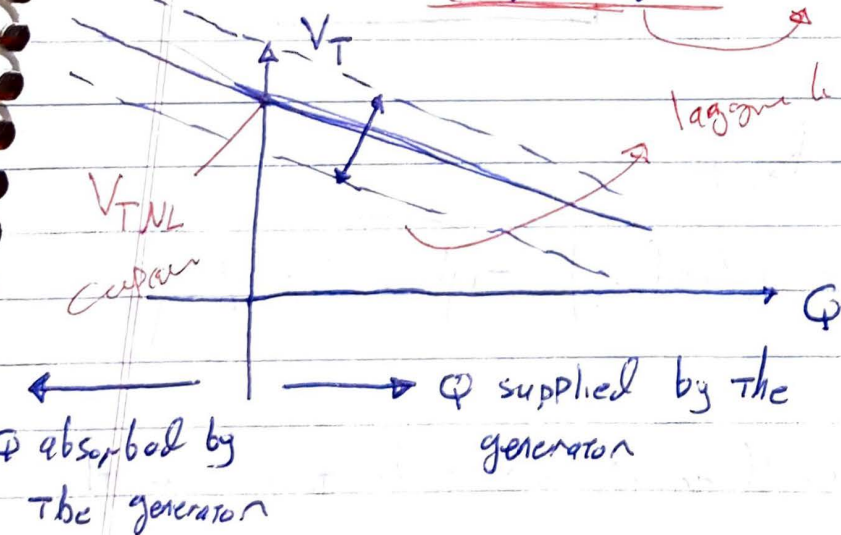 V_T
V_TNL
Q
Q supplied by The
generator
absorbed by
The generator